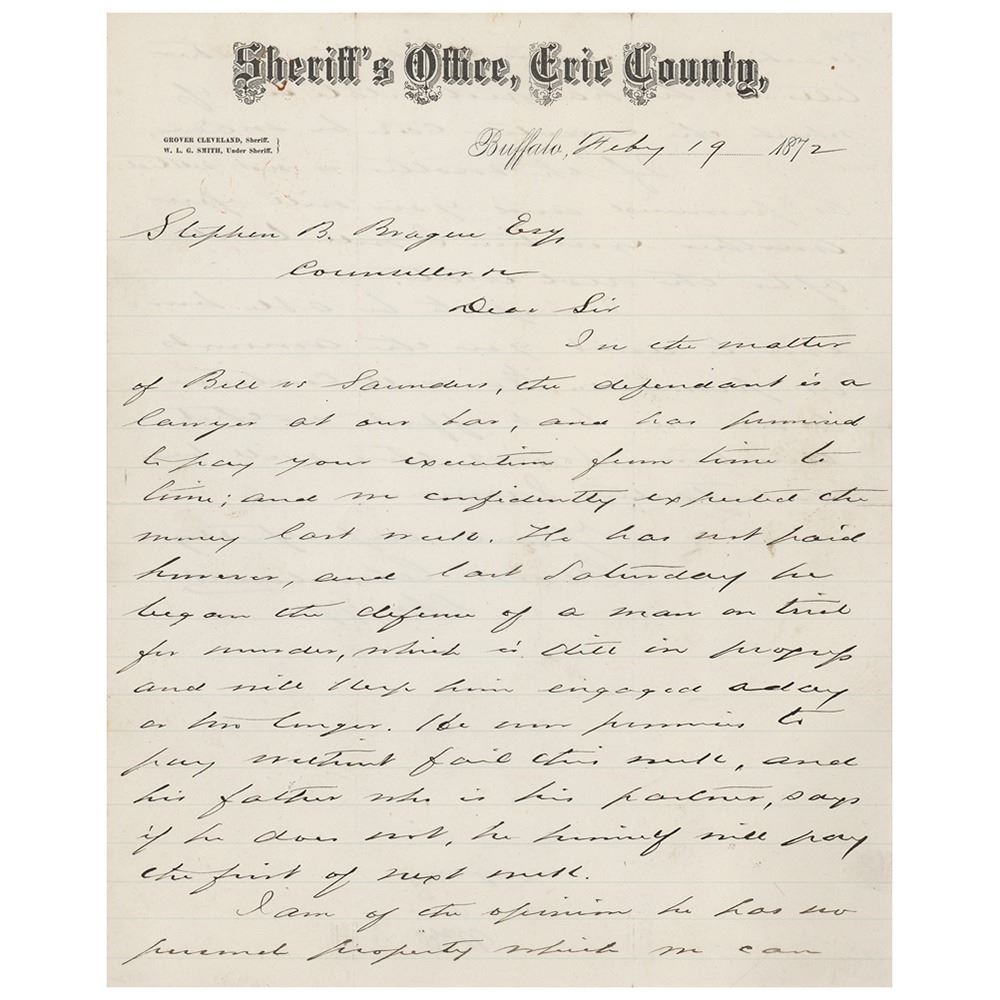 Sheriff's Office, Erie County,
GROVER CLEVELAND, Sheriff.
W. L. G. SMITH, Under Sheriff.
Buffalo, Feby 19 1872
Stephen B. Esq
Counsellor &c
Dear Sir
In the matter
of Bell vs Saunders, the defendant is a
lawyer at our bar, and has promised
to pay your execution from time to
time; and we confidently expected the
money last week. He has not paid
however, and last Saturday he
began the defense of a man on trial
for murder, which is still in progress
and will keep him engaged a day
or two longer. He now promises to
pay without fail this week, and
his father who is his partner, says
if he does not, he himself will pay
the first of next week.
I am of the opinion he has no
personal property which we can